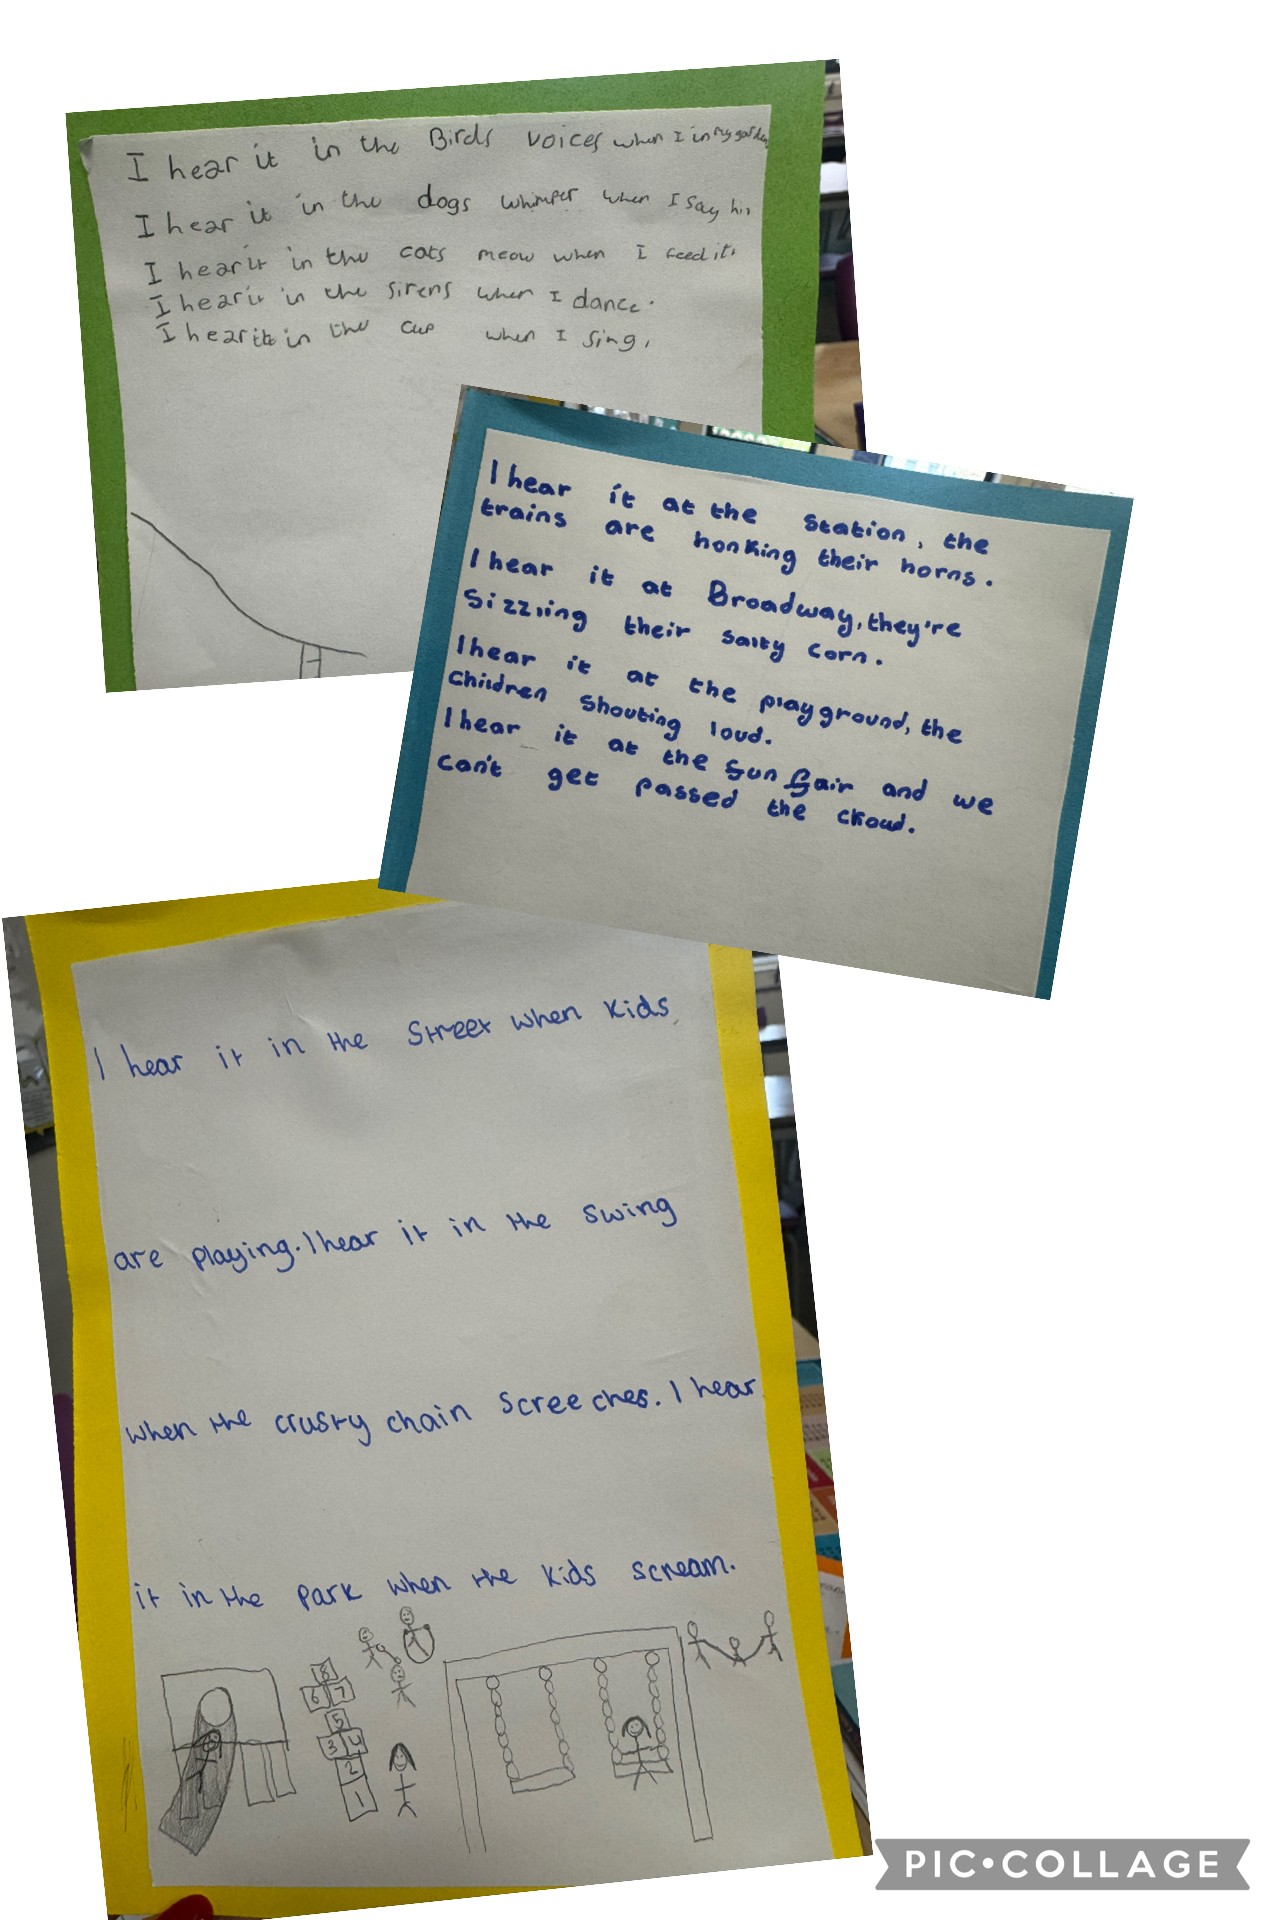 I hear it in the Birds voices when I in my garden
I hear it in the dogs whimper when I say his
I hear it in the cats meow when I feed it.
I hear it in the sirens when I dance.
I hear it in the cup when I sing.
I hear it at the Station, the
trains are honking their horns.
I hear it at Broadway, they're
Sizzling their salty corn.
I hear it at the playground, the
children shouting loud.
I hear it at the fun fair and we
can't get passed the croud.
I hear it in the Street when kids
are playing. I hear it in the swing
when the crusty chain screeches. I hear
it in the park when the kids scream.
8
6 7
5
3 4
2
1
PIC•COLLAGE